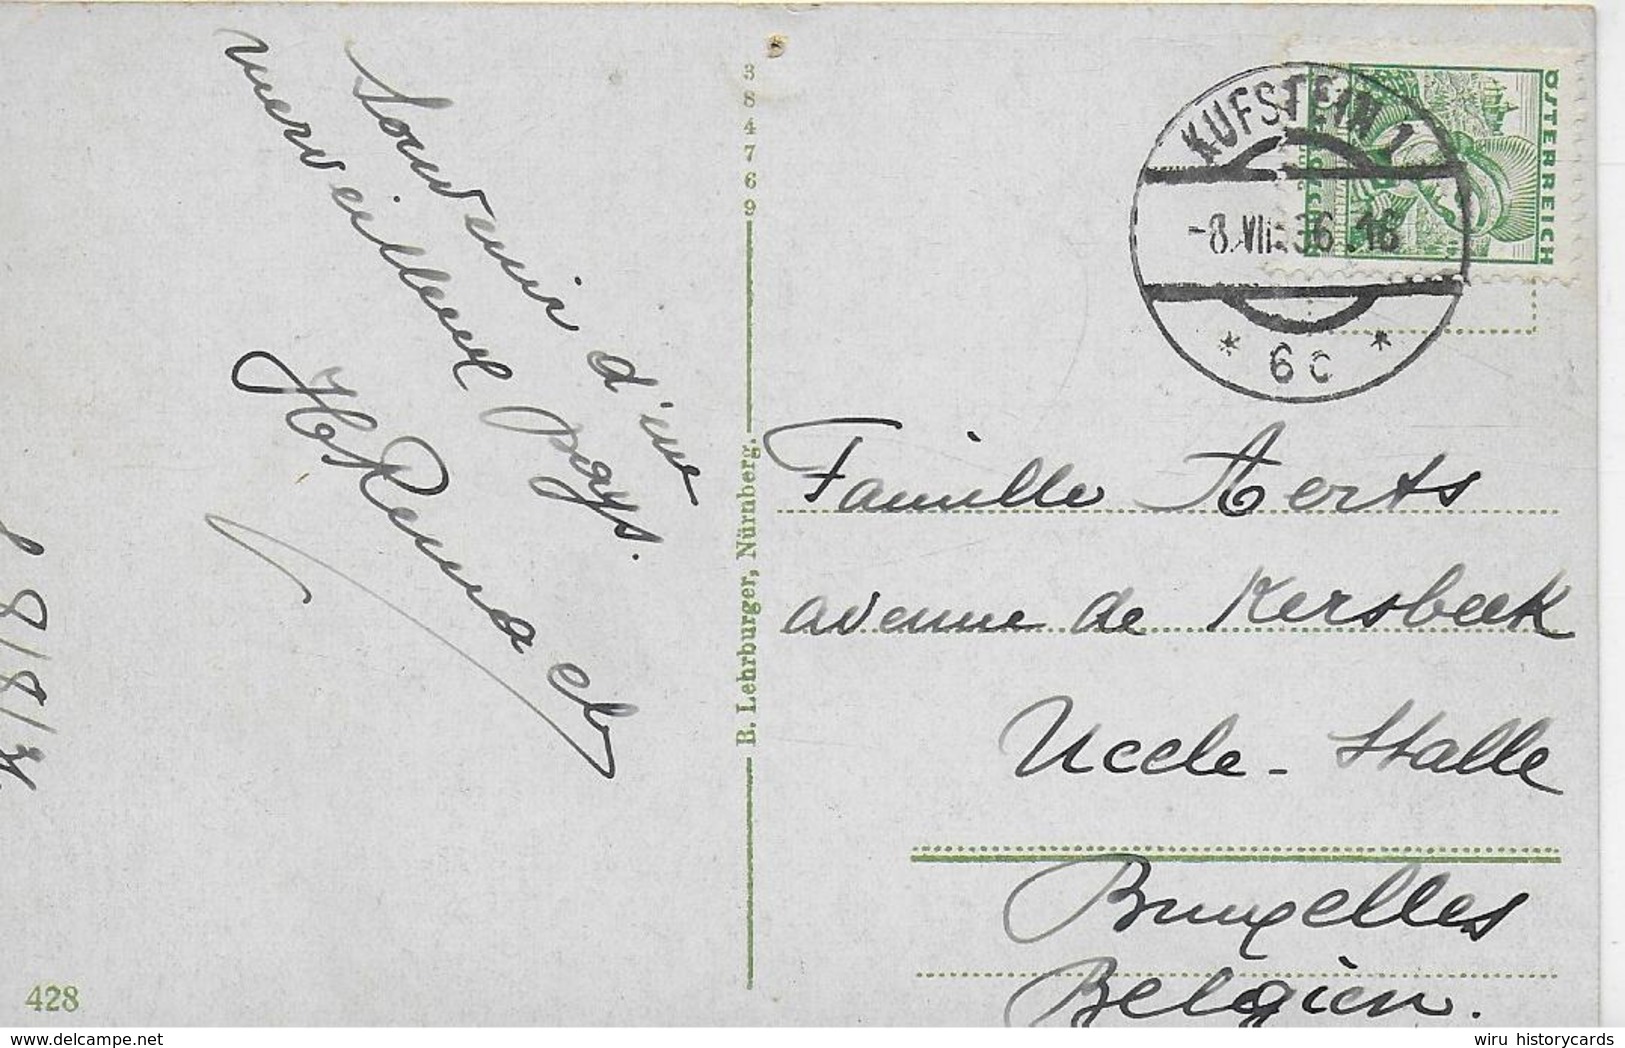 Souvenir d'une
merveilleux pays.
384769
B. Lehrburger, Nürnberg.
428
KUFSTEIN 1
-8.VIII.36.18
* 6c *
ÖSTERREICH
Famille Aerts
avenue de Kersbeek
Uccle - Stalle
Bruxelles
Belgien.
wiru historycards